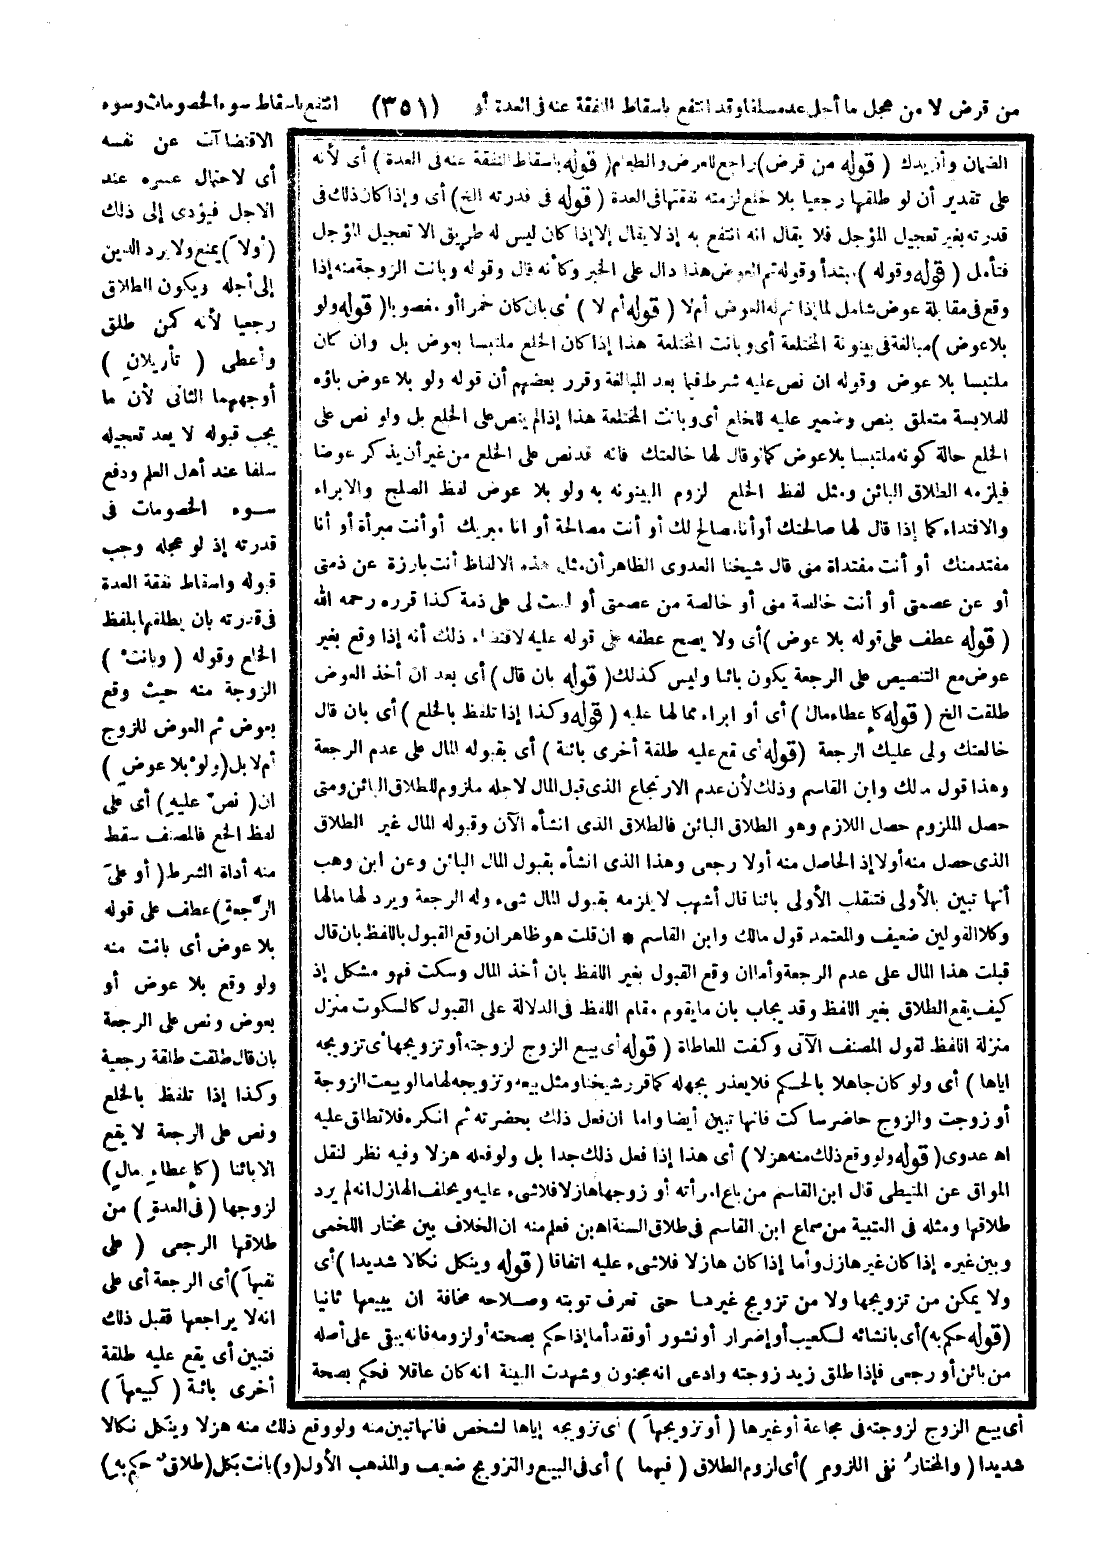 من قرض لا من مجل ما أجل عد مسلفا وقد انتفع باسقاط النفقة عنه فى العدة أو (٣٥١) انتفع باسقاط سوء الخصومات وسوء
الاقتضاآت عن نفسه
أى لاحتمال عسره عند
الاجل فيؤدى إلى ذلك
(أولا) يمنع ولا يرد الدين
إلى أجله ويكون الطلاق
رجعيا لأنه كمن طلق
وأعطى (تأويلان)
أوجههما الثانى لأن ما
يجب قبوله لا يعد تعجيله
سلفا عند أهل العلم ودفع
سوء الخصومات فى
قدرته إذ لو عجله وجب
قبوله واسقاط نفقة العدة
فى قدرته بان يطلقها بلفظ
الخلع وقوله (وبانت)
الزوجة منه حيث وقع
بعوض تم العوض للزوج
أم لا بل (ولو بلا عوض)
ان (نص عليه) أى على
لفظ الخلع فالمصنف سقط
منه أداة الشرط (أو على
الرجعة) عطف على قوله
بلا عوض أى بانت منه
ولو وقع بلا عوض أو
بعوض ونص على الرجعة
بان قال طلقت طلقة رجعية
وكذا إذا تلفظ بالخلع
ونص على الرجعة لا يقع
الا بائنا (كاعطاء مال)
لزوجها (فى العدة) من
طلاقها الرجعى (على
نفيها) أى الرجعة أى على
انه لا يراجعها فقبل ذلك
فتبين أى يقع عليه طلقة
أخرى بائنة (كبيعها)
الضمان وأزيدك (قوله من قرض) راجع للعرض والطعام (قوله باسقاط النفقة عنه فى العدة) أى لأنه
على تقدير أن لو طلقها رجعيا بلا خلع لزمته نفقتها فى العدة (قوله فى قدرته الخ) أى وإذا كان ذلك فى
قدرته بغير تعجيل المؤجل فلا يقال انه انتفع به إذ لا يقال إلا إذا كان ليس له طريق الا تعجيل المؤجل
فتأمل (قوله وقوله) مبتدأ وقوله تم العوض هذا دال على الخبر وكأنه قال وقوله وبانت الزوجة منه إذا
وقع فى مقابلة عوض شامل لما إذا تم له العوض أم لا (قوله أم لا) أى بان كان خمرا أو مغصوبا (قوله ولو
بلا عوض) مبالغة فى بينونة المختلعة أى وبانت المختلعة هذا إذا كان الخلع ملتبسا بعوض بل وان كان
ملتبسا بلا عوض وقوله ان نص عليه شرط فيما بعد المبالغة وقرر بعضهم أن قوله ولو بلا عوض باؤه
للملابسة متعلق بنص وضمير عليه للخلع أى وبانت المختلعة هذا إذا لم ينص على الخلع بل ولو نص على
الخلع حالة كونه ملتبسا بلا عوض كما لو قال لها خالعتك فانه قد نص على الخلع من غير أن يذكر عوضا
فيلزمه الطلاق البائن ومثل لفظ الخلع لزوم البينونه به ولو بلا عوض لفظ الصلح والابراء
والافتداء كما إذا قال لها صالحتك أو أنا مصالح لك أو أنت مصالحة أو انا مبريك أو أنت مبرأة أو أنا
مفتد منك أو أنت مفتداة منى قال شيخنا العدوى الظاهر أن مثل هذه الالفاظ أنت بارزة عن ذمتى
أو عن عصمتى أو أنت خالصة منى أو خالصة من عصمتى أو لست لى على ذمة كذا قرره رحمه الله
(قوله عطف على قوله بلا عوض) أى ولا يصح عطفه على قوله عليه لاقتضاء ذلك أنه إذا وقع بغير
عوض مع التنصيص على الرجعة يكون بائنا وليس كذلك (قوله بان قال) أى بعد ان أخذ العوض
طلقت الخ (قوله كاعطاء مال) أى أو ابراء مما لها عليه (قوله وكذا إذا تلفظ بالخلع) أى بان قال
خالعتك ولى عليك الرجعة (قوله أى يقع عليه طلقة أخرى بائنة) أى بقبوله المال على عدم الرجعة
وهذا قول مالك وابن القاسم وذلك لأن عدم الارتجاع الذى قبل المال لاجله ملزوم للطلاق البائن ومتى
حصل الملزوم حصل اللازم وهو الطلاق البائن فالطلاق الذى انشأه الآن وقبوله المال غير الطلاق
الذى حصل منه أولا إذ الحاصل منه أولا رجعى وهذا الذى انشأه بقبول المال البائن وعن ابن وهب
أنها تبين بالأولى فتنقلب الأولى بائنا قال أشهب لا يلزمه بقبول المال شىء وله الرجعة ويرد لها مالها
وكلا القولين ضعيف والمعتمد قول مالك وابن القاسم * ان قلت هو ظاهر ان وقع القبول باللفظ بان قال
قبلت هذا المال على عدم الرجعة وأما ان وقع القبول بغير اللفظ بان أخذ المال وسكت فهو مشكل إذ
كيف يقع الطلاق بغير اللفظ وقد يجاب بان ما يقوم مقام اللفظ فى الدلالة على القبول كالسكوت منزل
منزلة اللفظ لقول المصنف الآتى وكفت المعاطاة (قوله أى بيع الزوج لزوجته أو تزويجها أى تزويجه
اياها) أى ولو كان جاهلا بالحكم فلا يعذر بجهله كما قرر شيخنا ومثل بيعه وتزويجه لها ما لو بيعت الزوجة
أو زوجت والزوج حاضر ساكت فانها تبين أيضا واما ان فعل ذلك بحضرته ثم انكره فلا تطلق عليه
اه عدوى (قوله ولو وقع ذلك منه هزلا) أى هذا إذا فعل ذلك جدا بل ولو فعله هزلا وفيه نظر لنقل
المواق عن المتيطى قال ابن القاسم من باع امرأته أو زوجها هازلا فلا شىء عليه ويحلف الهازل انه لم يرد
طلاقها ومثله فى العتبية من سماع ابن القاسم فى طلاق السنة اه بن فعلم منه ان الخلاف بين مختار اللخمى
وبين غيره إذا كان غير هازل وأما إذا كان هازلا فلا شىء عليه اتفاقا (قوله وينكل نكالا شديدا) أى
ولا يمكن من تزويجها ولا من تزويج غيرها حتى تعرف توبته وصلاحه مخافة ان يبيعها ثانيا
(قوله حكم به) أى بانشائه لكعيب أو إضرار أو نشور أو فقد أما إذا حكم بصحته أو لزومه فانه يبقى على أصله
من بائن أو رجعى فإذا طلق زيد زوجته وادعى انه مجنون وشهدت البينة انه كان عاقلا فحكم بصحة
أى بيع الزوج لزوجته فى مجاعة أو غيرها (أو تزويجها) أى تزويجه إياها لشخص فانها تبين منه ولو وقع ذلك منه هزلا وينكل نكالا
شديدا (والمختار نفى اللزوم) أى لزوم الطلاق (فيهما) أى فى البيع والتزويج ضعيف والمذهب الأول (و) بانت بكل (طلاق حكم به)